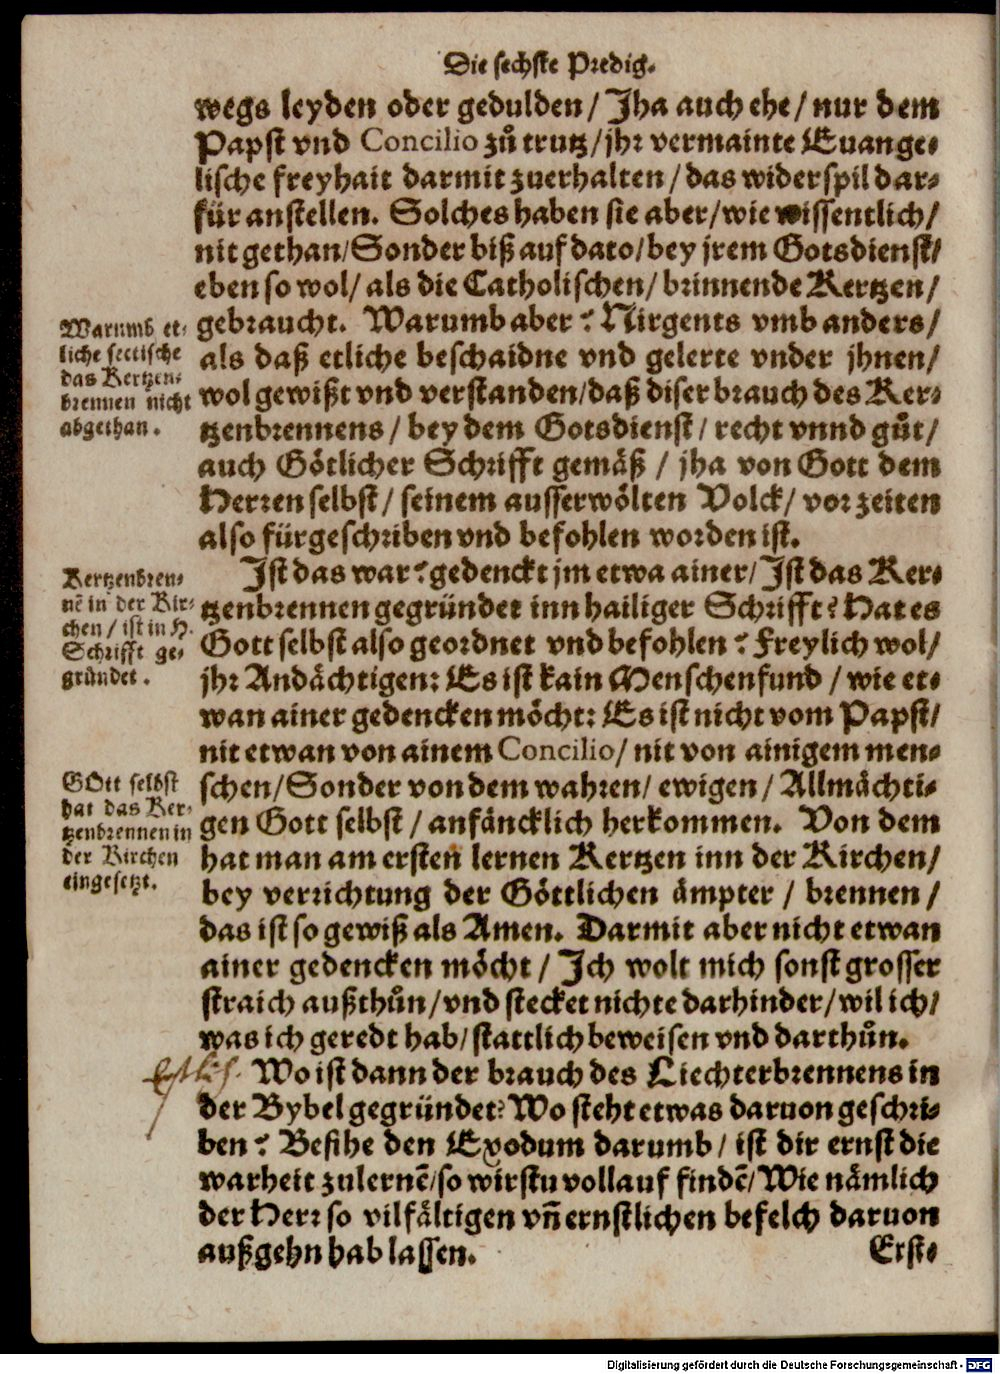 Die sechste Predig.
wegs leyden oder gedulden / Jha auch ehe / nur dem
Papst vnd Concilio zů trutz / jhr vermainte Euange-
lische freyhait darmit zuerhalten / das widerspil dar-
für anstellen. Solches haben sie aber / wie wissentlich /
nit gethan / Sonder biß auf dato / bey jrem Gotsdienst /
eben so wol / als die Catholischen / brinnende Kertzen /
gebraucht. Warumb aber? Nirgents vmb anders /
als daß etliche beschaidne vnd gelerte vnder jhnen /
wol gewißt vnd verstanden / daß diser brauch des Ker-
tzenbrennens / bey dem Gotsdienst / recht vnnd gůt /
auch Götlicher Schrifft gemäß / jha von Gott dem
Herren selbst / seinem ausserwölten Volck / vor zeiten
also fürgeschriben vnd befohlen worden ist.
Warumb et-
liche sectische
das Kertzen-
brennen nicht
abgethan.
Ist das war? gedenckt jm etwa ainer / Ist das Ker-
tzenbrennen gegründet inn hailiger Schrifft? Hat es
Gott selbst also geordnet vnd befohlen? Freylich wol /
jhr Andächtigen: Es ist kain Menschenfund / wie et-
wan ainer gedencken möcht: Es ist nicht vom Papst /
nit etwan von ainem Concilio / nit von ainigem men-
schen / Sonder von dem wahren / ewigen / Allmächti-
gen Gott selbst / anfäncklich herkommen. Von dem
hat man am ersten lernen Kertzen inn der Kirchen /
bey verrichtung der Göttlichen ämpter / brennen /
das ist so gewiß als Amen. Darmit aber nicht etwan
ainer gedencken möcht / Ich wolt mich sonst grosser
straich außthůn / vnd stecket nichte darhinder / wil ich /
was ich geredt hab / stattlich beweisen vnd darthůn.
Kertzenbren-
nē in der Kir-
chen / ist in H.
Schrifft ge-
gründet.
GOtt selbst
hat das Ker-
tzenbrennen in
der Kirchen
eingesetzt.
Wo ist dann der brauch des Liechterbrennens in
der Bybel gegründet? Wo steht etwas daruon geschri-
ben? Besihe den Exodum darumb / ist dir ernst die
warheit zulernē / so wirstu vollauf findē / Wie nämlich
der Herr so vilfältigen vñ ernstlichen befelch daruon
außgehn hab lassen.
Erst-
Digitalisierung gefördert durch die Deutsche Forschungsgemeinschaft - DFG